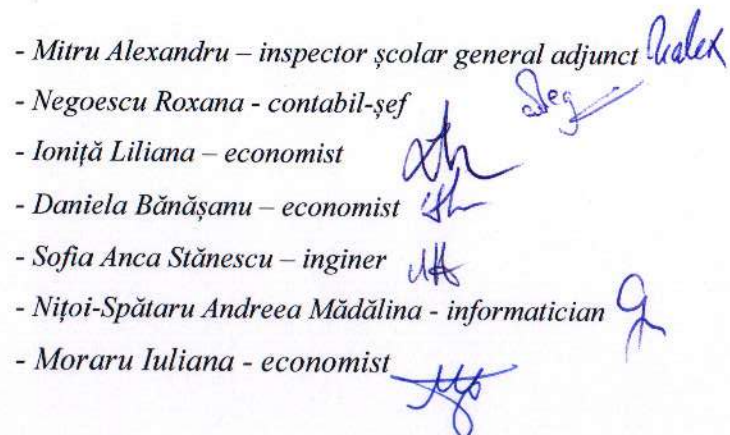 - Mitru Alexandru – inspector școlar general adjunct
- Negoescu Roxana - contabil-șef
- Ioniță Liliana – economist
- Daniela Bănășanu – economist
- Sofia Anca Stănescu – inginer
- Nițoi-Spătaru Andreea Mădălina - informatician
- Moraru Iuliana - economist